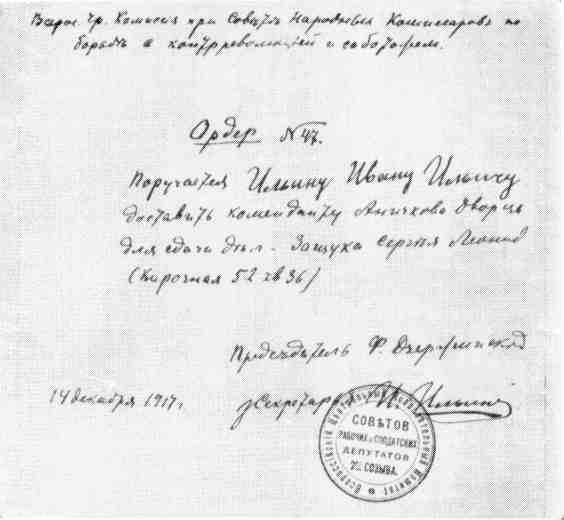 Всерос. Чр. Комиссия при Советѣ Народныхъ Комиссаровъ по
борьбѣ с контрреволюцией и саботажем.
Ордер № 47.
Поручается Ильину Ивану Ильичу
доставить коменданту Аничкова Дворца
для сдачи дѣл. Защука Сергѣя Леонид
(Кирочная 52 кв 36)
Предсѣдатель Ф. Дзержинский
14 декабря 1917 г.
Секретарь И. Ильин
Всероссійскій Центральный Исполнительный Комитет
СОВѢТОВ
РАБОЧИХ и СОЛДАТСКИХ
ДЕПУТАТОВ
2го СОЗЫВА.